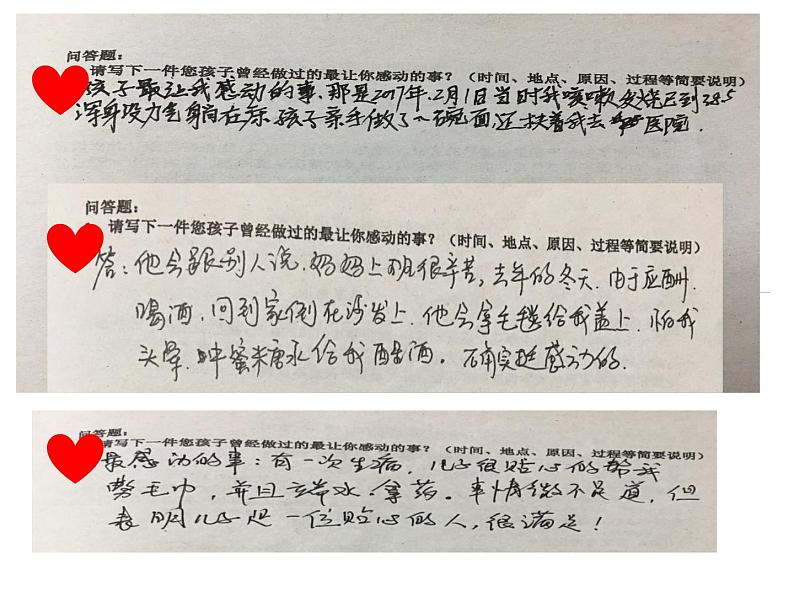 问答题：
请写下一件您孩子曾经做过的最让你感动的事？（时间、地点、原因、过程等简要说明）
孩子最让我感动的事、那是2017年.2月1日当时我咳嗽发烧已到38.5
浑身没力气躺在床.孩子亲手做了一碗面,还扶着我去医院.
问答题：
请写下一件您孩子曾经做过的最让你感动的事？（时间、地点、原因、过程等简要说明）
答：他会跟别人说,妈妈上班很辛苦,去年的冬天.由于应酬.
喝酒,回到家倒在沙发上.他会拿毛毯给我盖上.怕我
头晕.冲蜜糖水给我醒酒。确实挺感动的.
问答题：
请写下一件您孩子曾经做过的最让你感动的事？（时间、地点、原因、过程等简要说明）
最感动的事：有一次生病,儿子很贴心的帮我
敷毛巾,并且端水、拿药。事情微不足道,但
表明儿子是一位贴心的人,很满足!